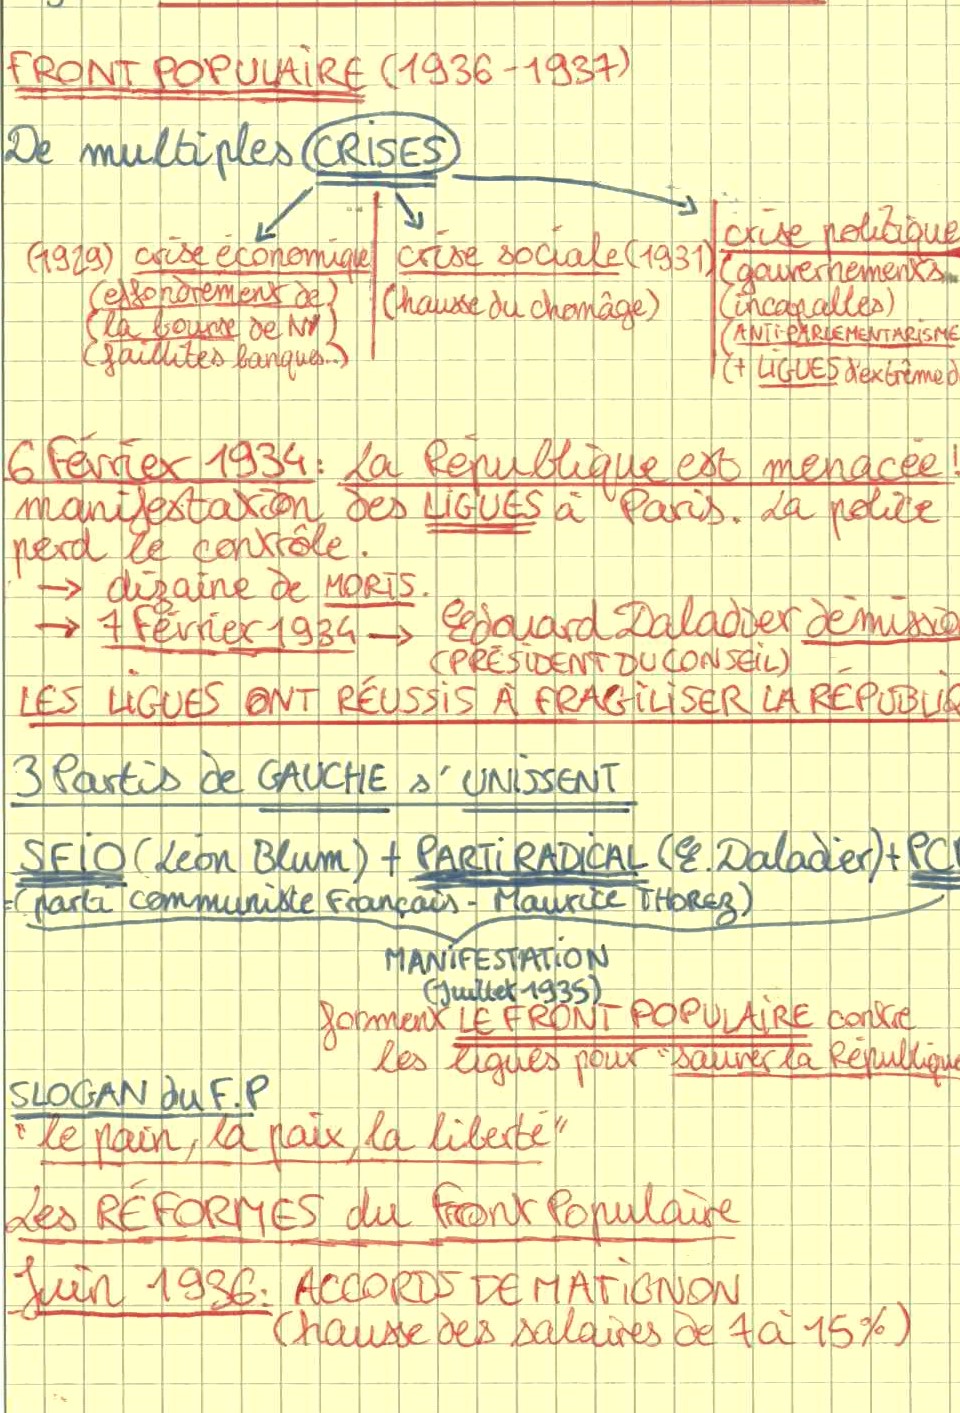 FRONT POPULAIRE (1936-1937)
De multiples CRISES
(1929) crise économique
(effondrement de)
(la bourse de NY)
(faillites banques..)
crise sociale (1931)
(hausse du chomâge)
crise politique
(gouvernements
(incapables)
(ANTI-PARLEMENTARISME
(+ LIGUES d'extrême d
6 Février 1934: La République est menacée!
manifestation des LIGUES à Paris. La police
perd le contrôle.
→ dizaine de MORTS.
→ 7 Février 1934 → Edouard Daladier démissio
(PRÉSIDENT DU CONSEIL)
LES LIGUES ONT RÉUSSIS À FRAGILISER LA RÉPUBLIQ
3 Partis de GAUCHE s'UNISSENT
SFIO (Léon Blum) + PARTI RADICAL (E. Daladier) + PCF
=(parti communiste Français - Maurice THOREZ)
MANIFESTATION
(Juillet 1935)
forment LE FRONT POPULAIRE contre
les ligues pour "sauver la République
SLOGAN du F.P
"le pain, la paix, la liberté"
Les RÉFORMES du Front Populaire
Juin 1936: ACCORDS DE MATIGNON
(hausse des salaires de 7 à 15%)